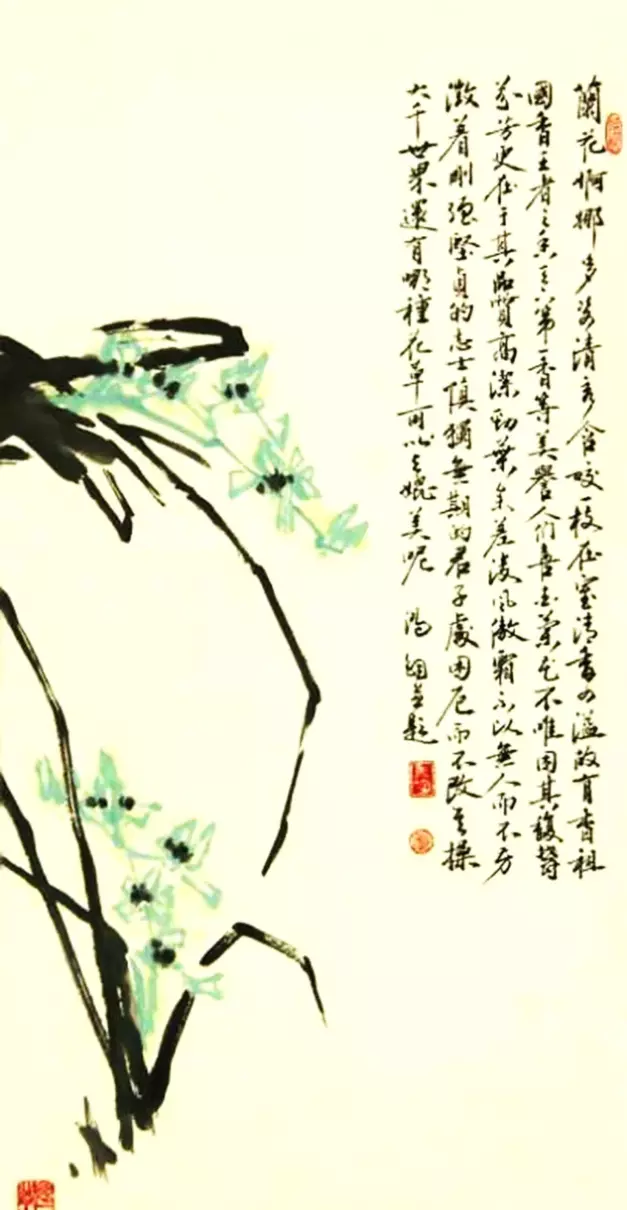 蘭花婀娜多姿清秀含一枝在室清香四溢故有香祖
國香王者之香天下第一香等美譽人們喜畫蘭花不唯因其馥鬱
芬芳更在于其品質高潔勁葉參差凌風傲霜不以無人而不芳
徵着剛強堅貞的志士慎獨無期的君子處困厄而不改其操
大千世界還有哪種花草可以與媲美呢 並題